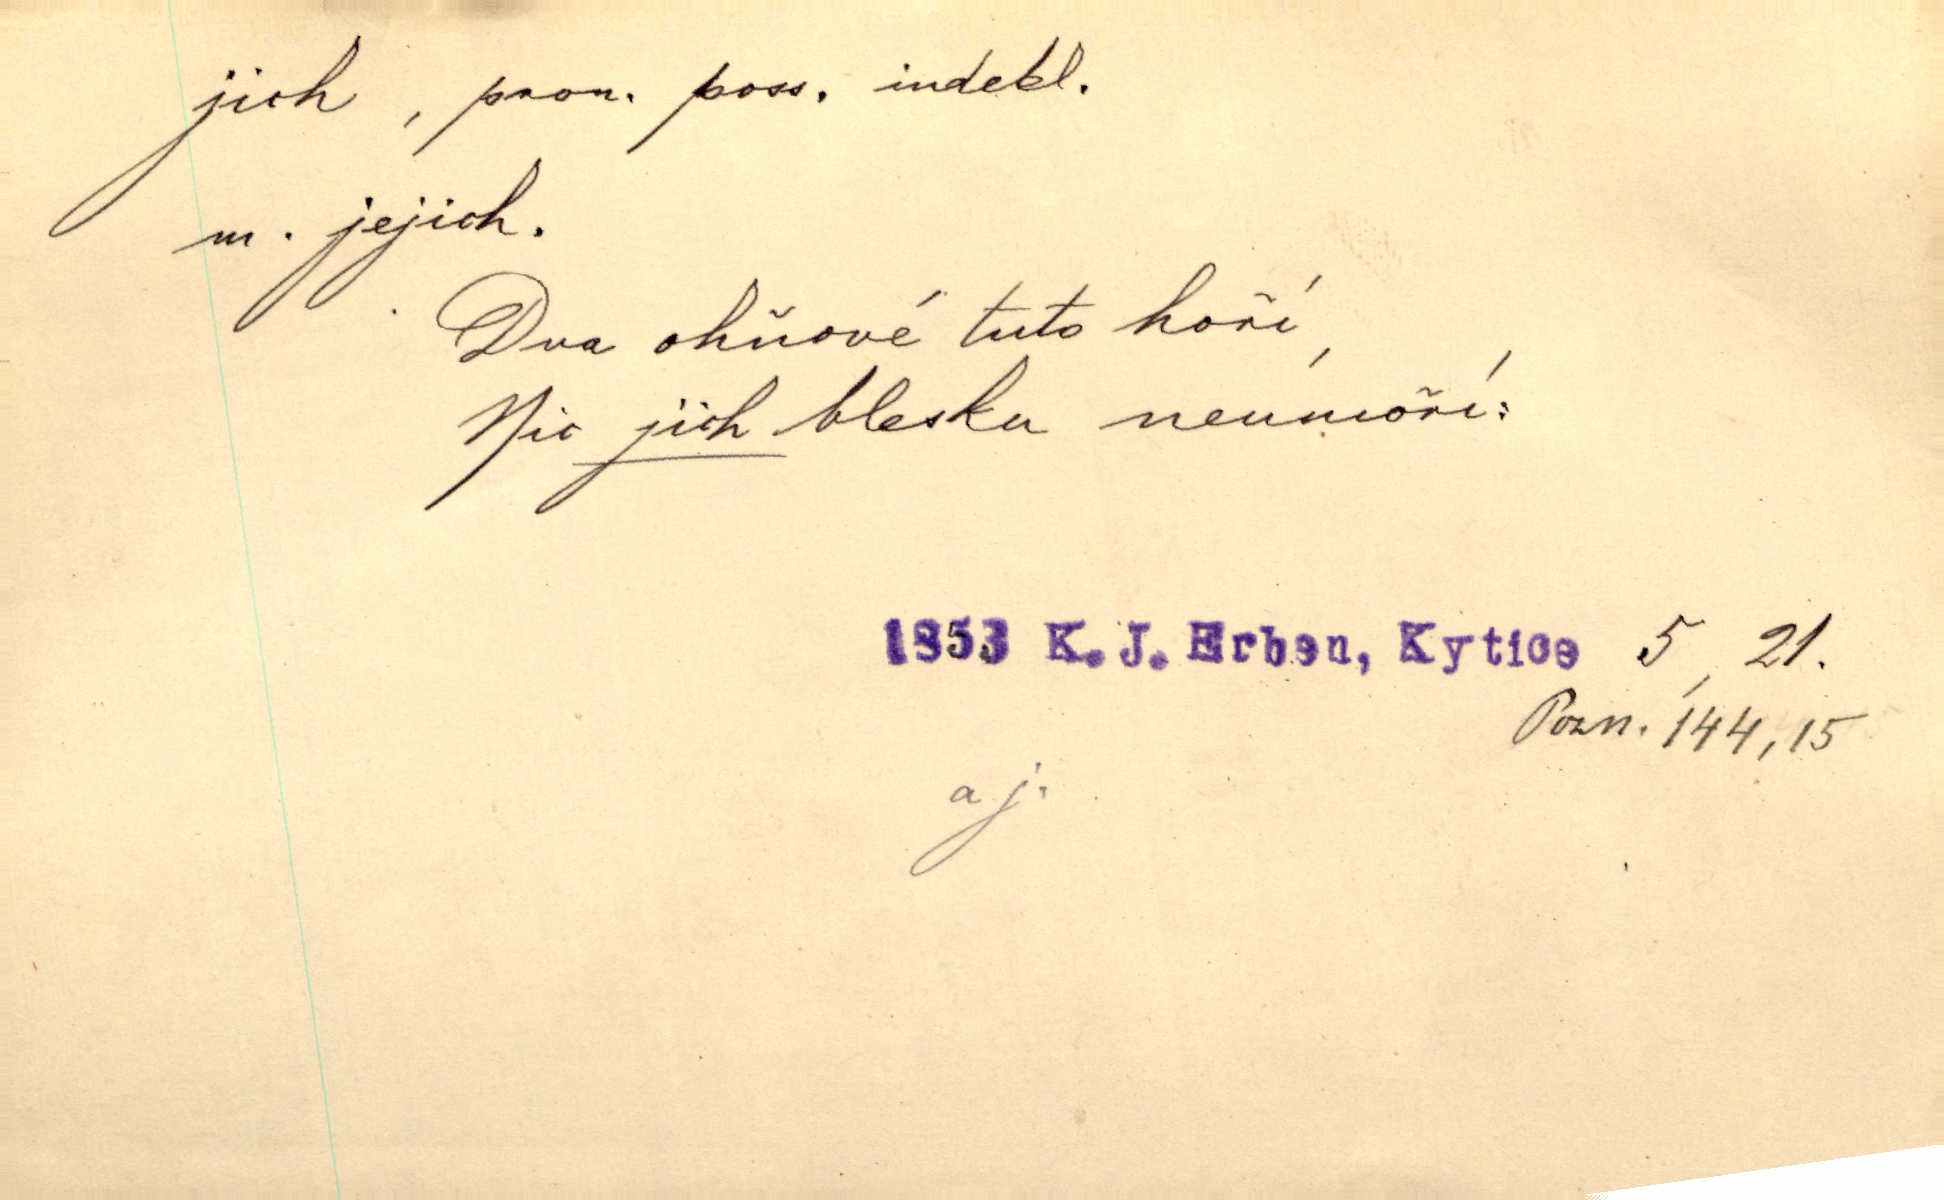 jich, pron. poss. indekl.
m. jejich.
Dva ohňové tuto hoří,
Nic jich blesku neumoří:
1853 K. J. Erben, Kytice 5, 21.
Pozn. 144, 15
a j.